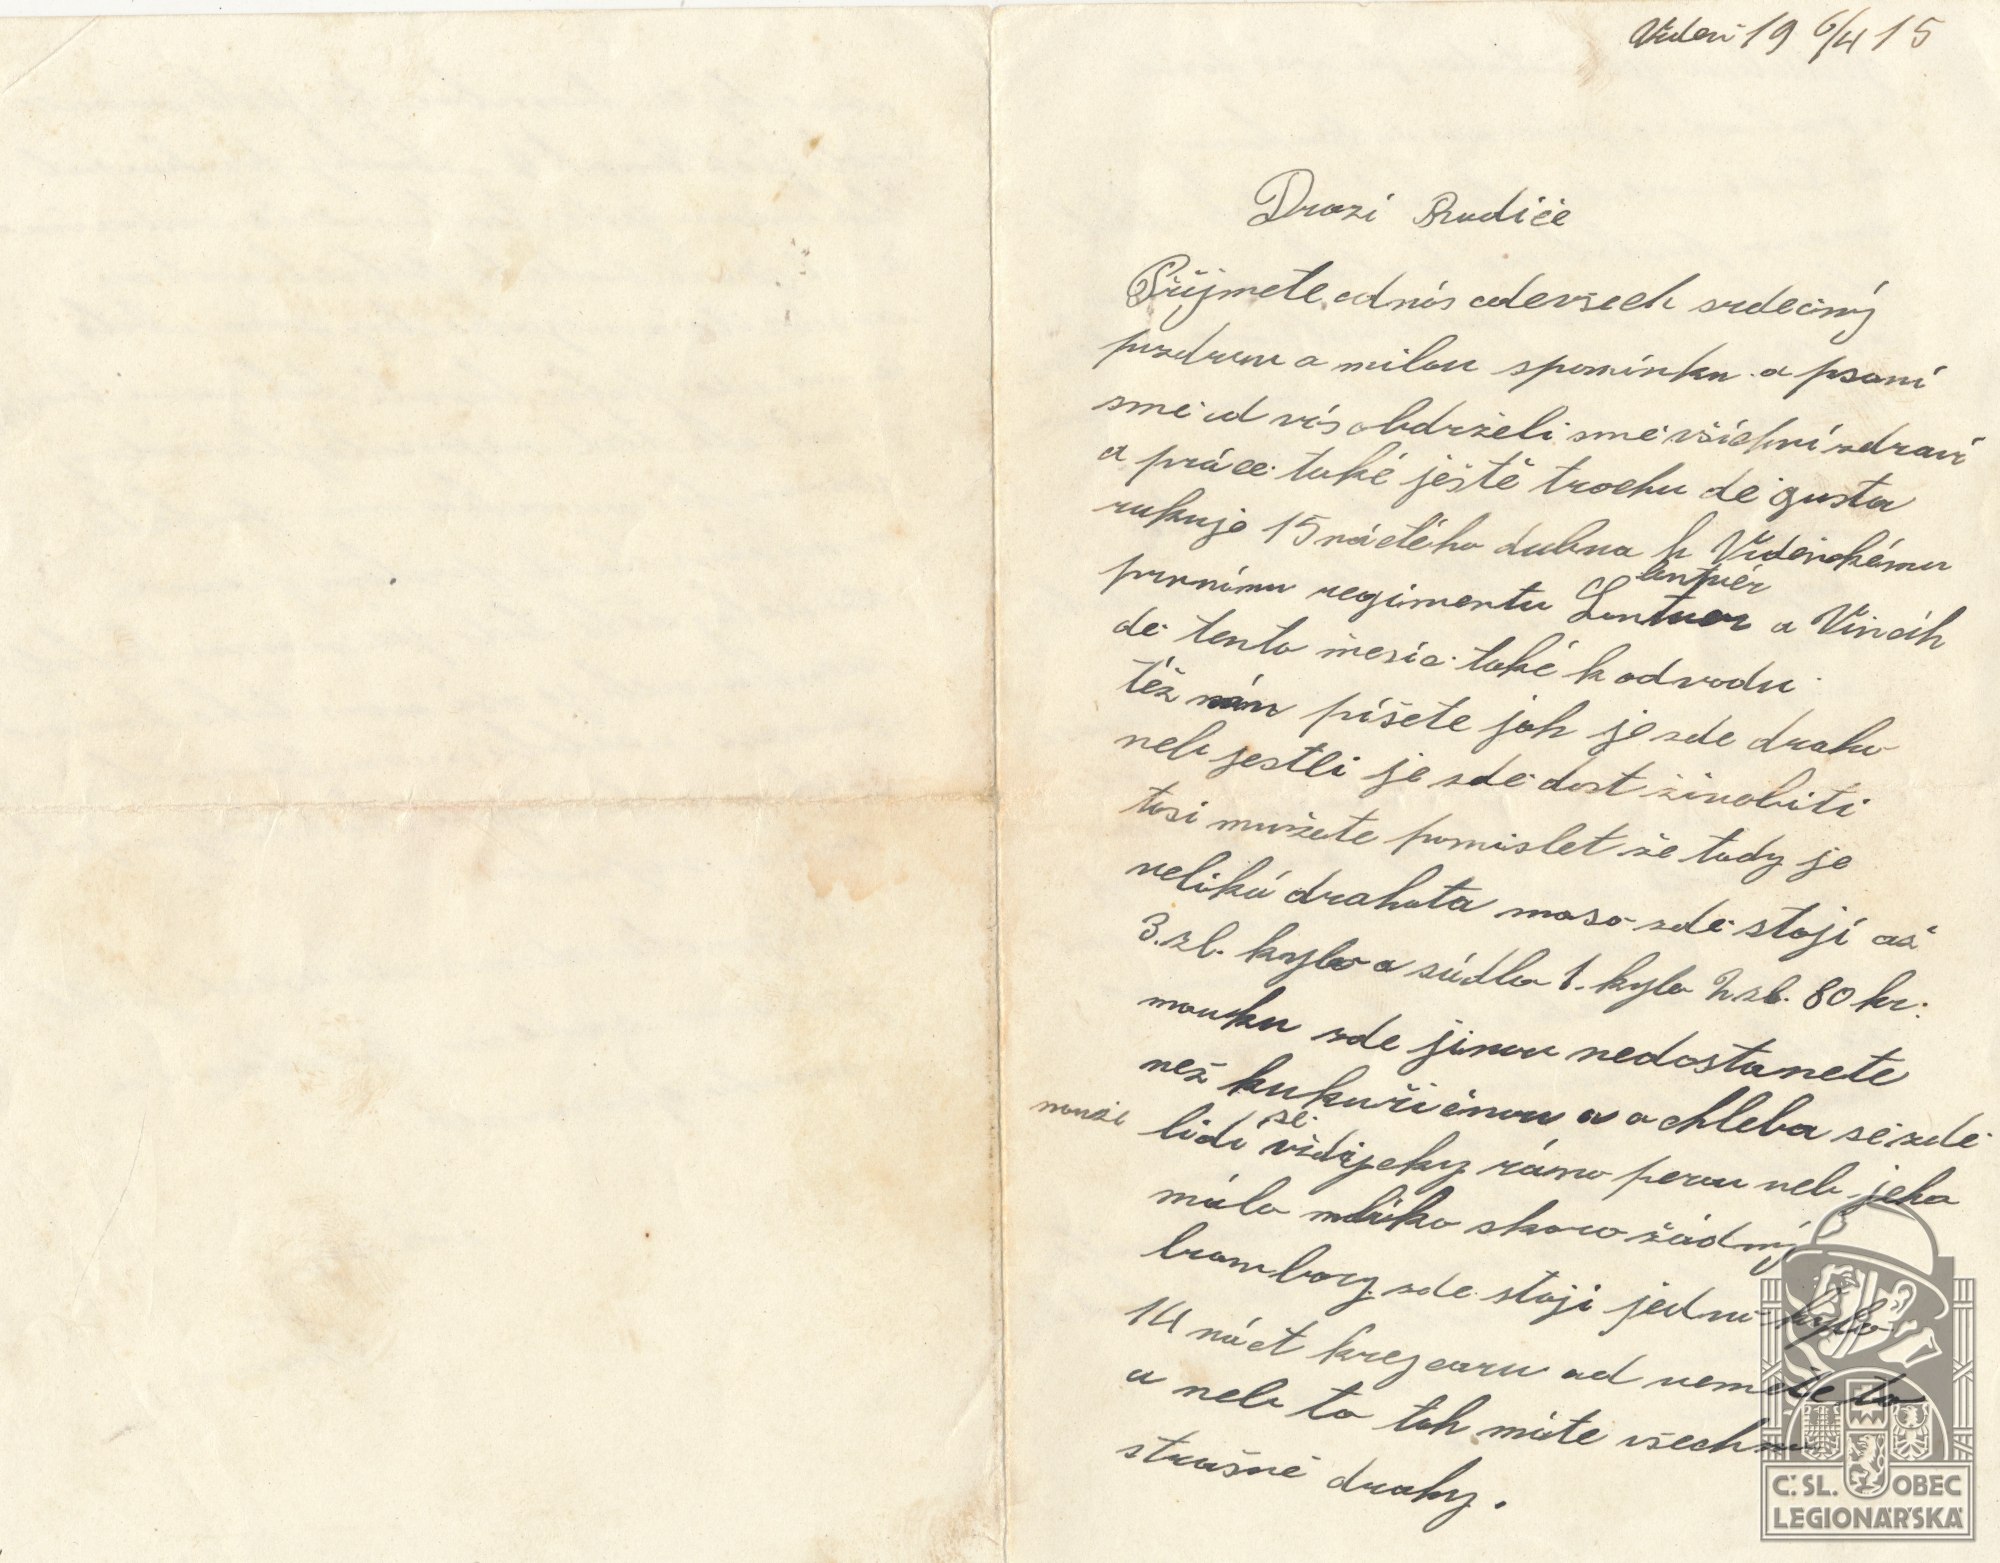 Videň 19 6/4 15
Drazí Rudiče
Přijmete od nás odevšech srdečný
pozdrav a milou spomínku a psaní
smě od vás obdrželi smě všichní zdraví
a práce také ještě trochu de gusta
rukuje 15 náctého dubna k Videňskému
prvnímu regimentu Lantvér a Vincih
de tento mesíc také k odvodu
též nám píšete jak je zde draho
neb jestli je zde dost živobití
tosi mužete pomislet že tady je
veliká drahota maso zdě stojí až
3. zl. kylo a sádlo 1. kylo 2 zl. 80 kr.
mouku zde jinou nedostanete
než kukuřičnou a o chleba sezde
lidí se vždijcky ráno perou neb jeho
málo mlíko skoro žádný
brambory zde stoji jedno kylo
14 náct krejcaru od vemete to
a neb to tak máte všechno
strašně drahy.
Č. SL. OBEC
LEGIONÁŘSKÁ